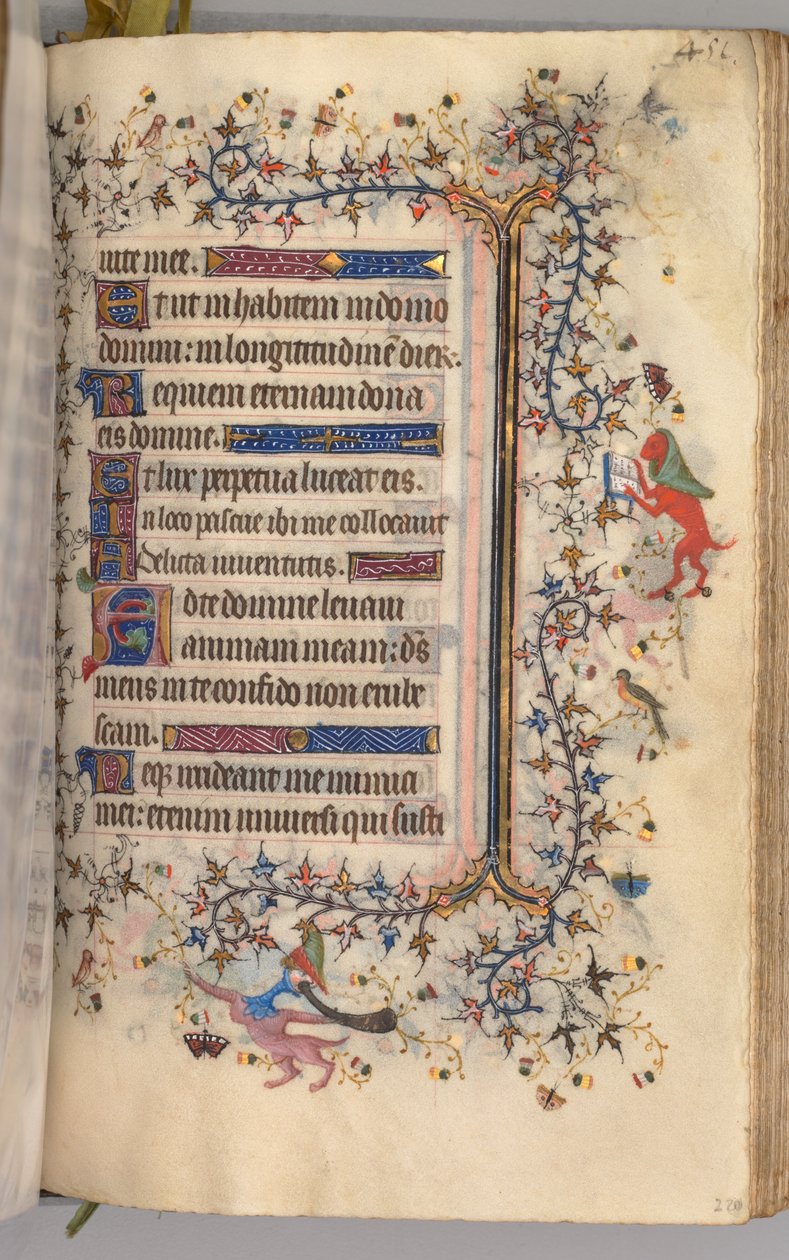 456.
uite mee.
Et ut inhabitem in domo
domini: in longitudinē dier
Requiem eternam dona
eis domine.
Et lux perpetua luceat eis.
In loco pascue ibi me collocauit
Delicta iuuentutis.
Ad te domine leuaui
animam meam: dñs
meus in te confido non erube
scam.
Neq; irrideant me inimici
mei: etenim uniuersi qui susti
220